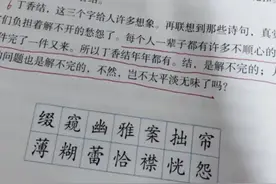 丁香结，这三个字给人许多想象。再联想到那些诗句，真
们负担着解不开的愁怨了。每个人一辈子都有许多不顺心的
件完了一件又来。所以丁香结年年都有。结，是解不完的；
问题也是解不完的，不然，岂不太平淡无味了吗？
缀 窥 幽 雅 案 拙 帘
薄 糊 蕾 恰 襟 恍 怨